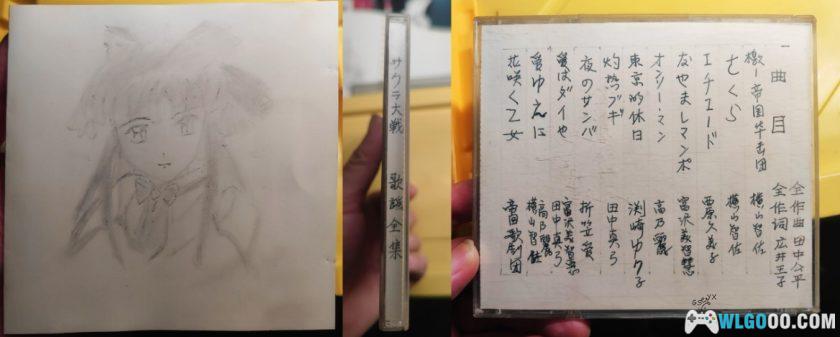 サクラ大戦 歌謡全集
一曲目
全作曲 田中公平
全作詞 広井王子
檄!帝国华击団 横山智佐
さくら 横山智佐
エチュード 西原久美子
なやましマンボ 富沢美智恵
オンリー・マン 高乃麗
東京的休日 渕崎ゆり子
灼熱ブギ 田中真弓
夜のサンバ 折笠愛
愛はダイヤ 富沢美智恵 田中真弓
愛ゆえに 高乃麗 横山智佐
花咲く乙女 帝国歌劇団
WLGOOO.COM